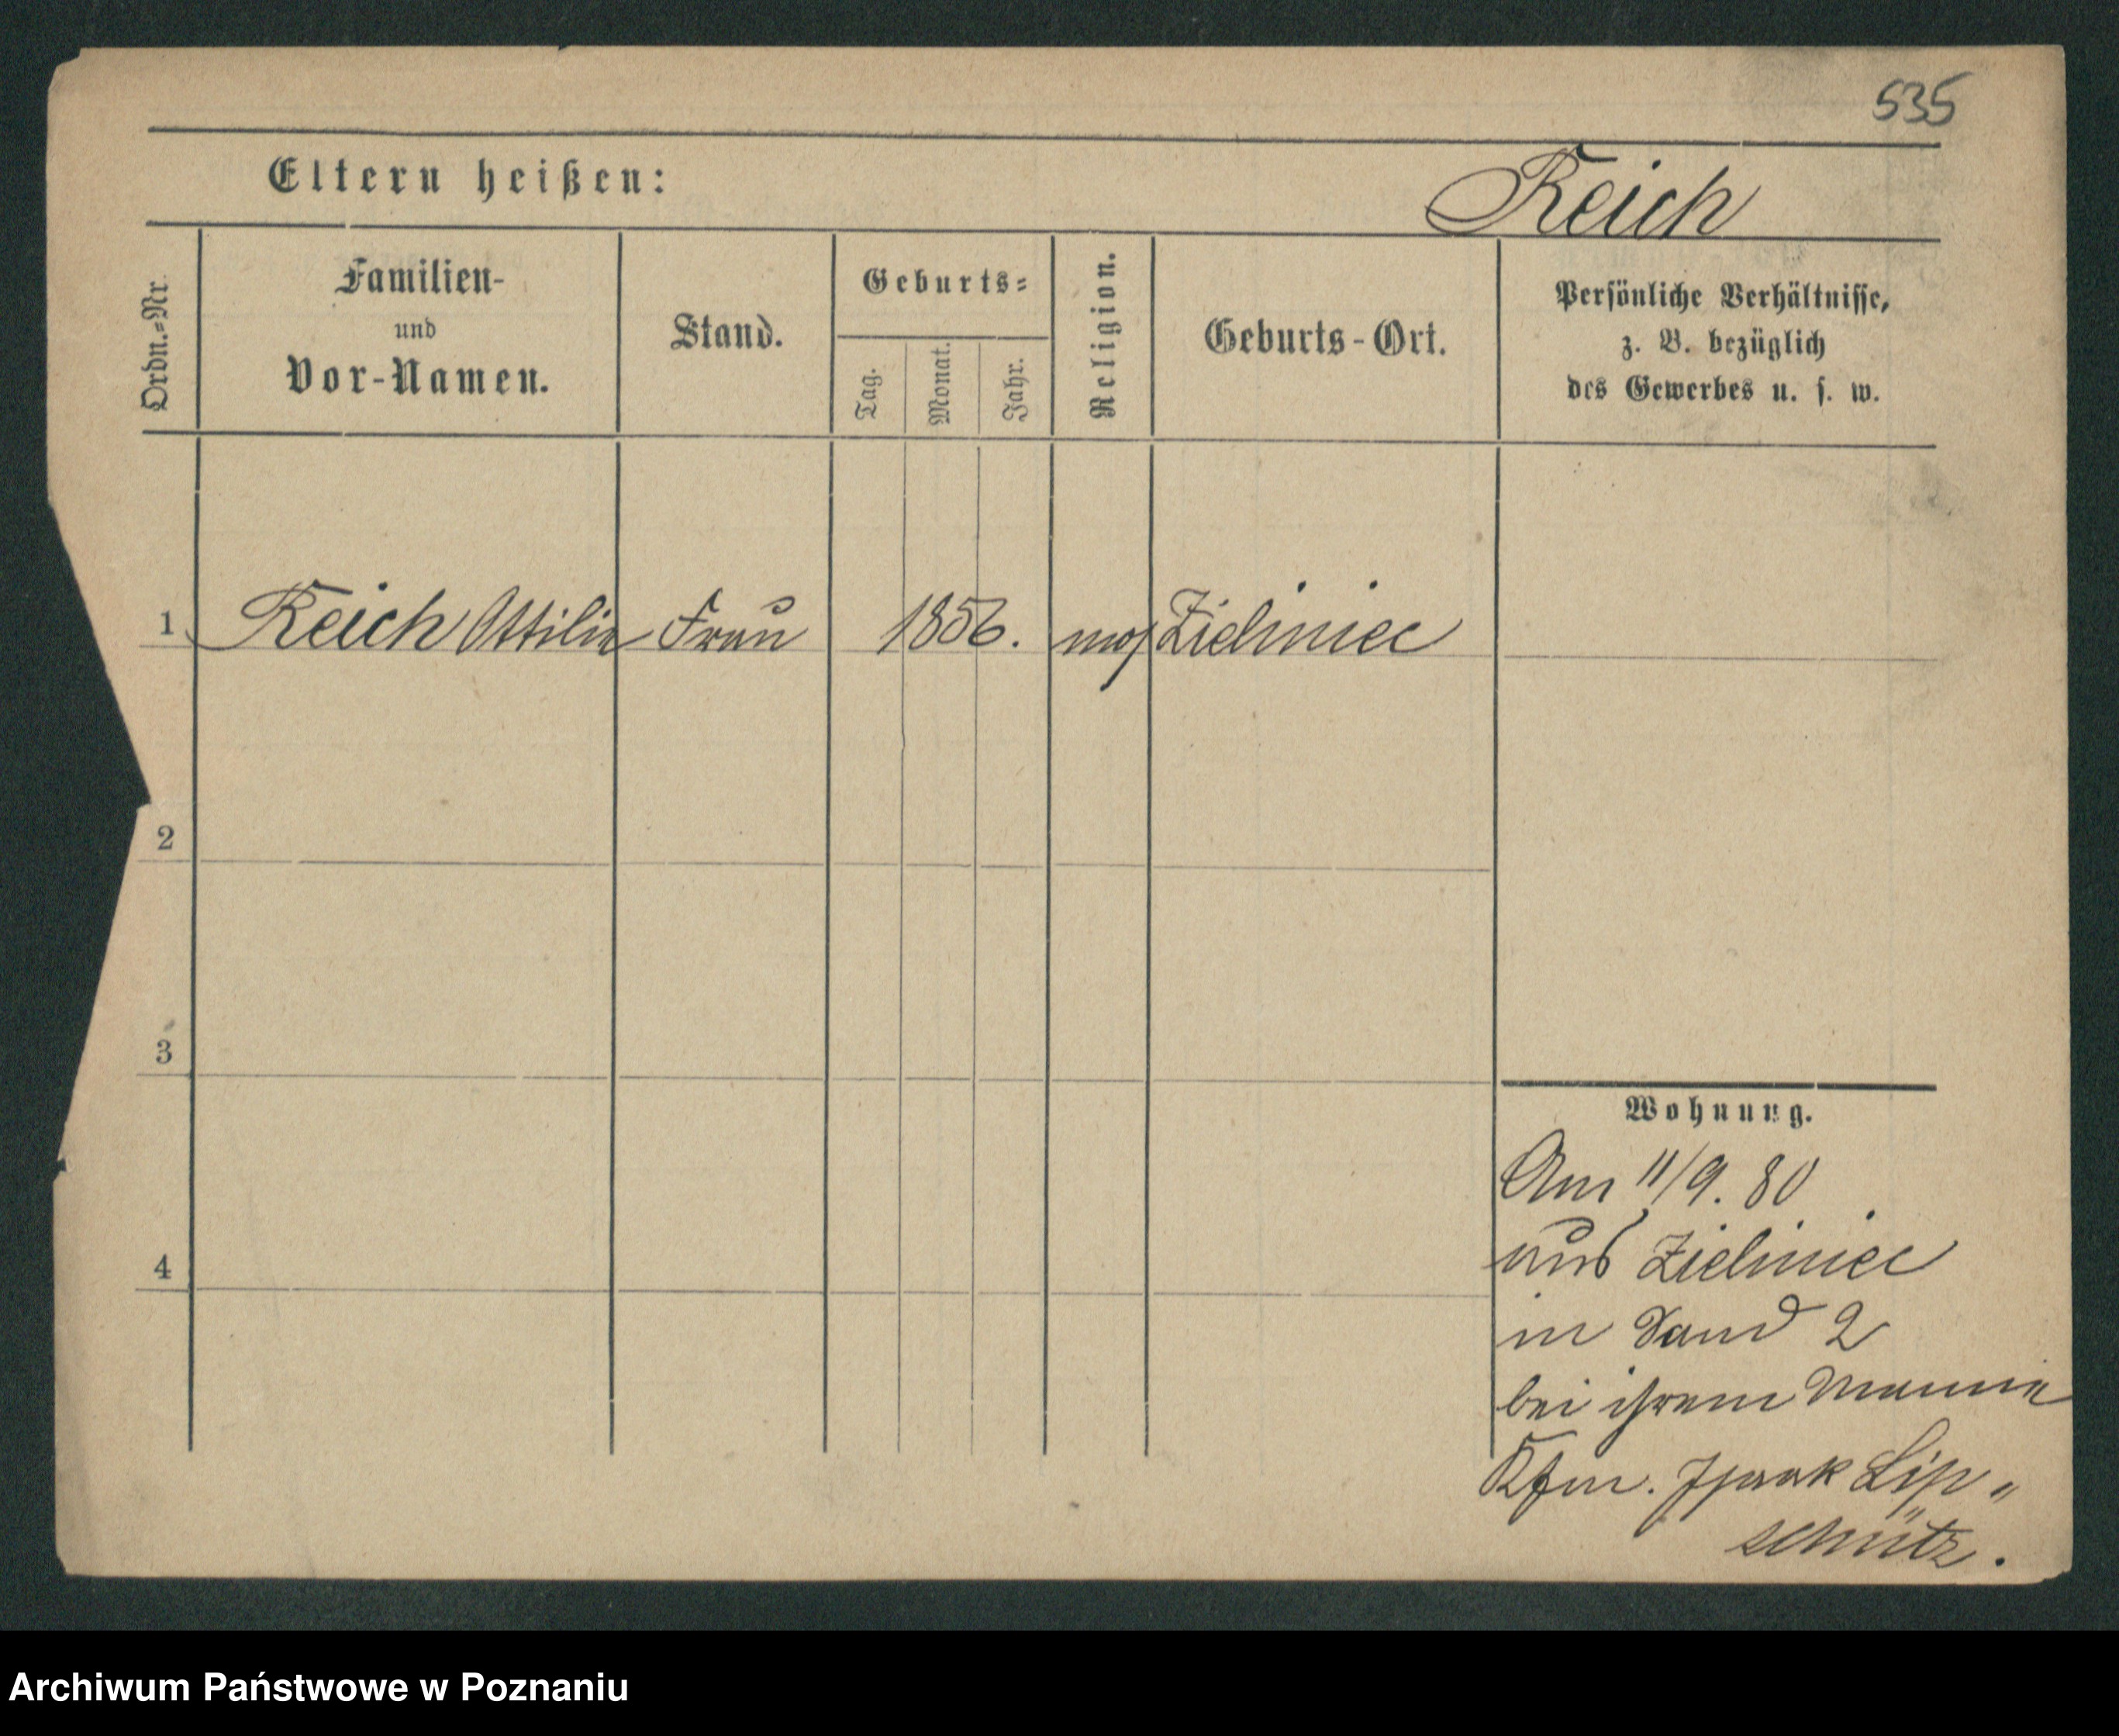 535
Eltern heißen:
Reich
Ordn.-Nr.
Familien-
und
Vor-Namen.
Stand.
Geburts-
Tag.
Monat.
Jahr.
Religion.
Geburts-Ort.
Persönliche Verhältnisse,
z. B. bezüglich
des Gewerbes u. s. w.
1 Reich Ottilie Frau 1856. mos Zieliniec
2
3
4
Wohnung.
Am 11/9. 80
aus Zieliniec
in Sand 2
bei ihrem Manne
Kfm. Isaak Lip„
schütz.
Archiwum Państwowe w Poznaniu